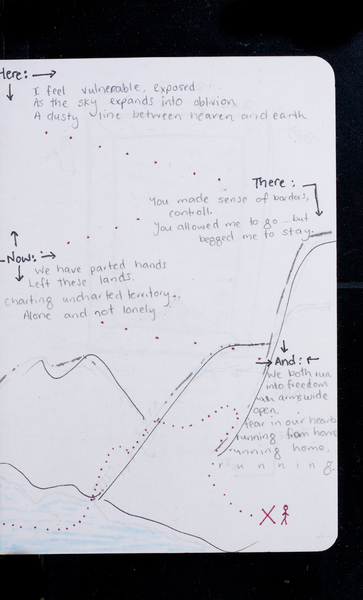 Here:
I feel vulnerable, exposed
As the sky expands into oblivion
A dusty line between heaven and earth
There:
You made sense of borders,
controll.
You allowed me to go but
begged me to stay.
Now:
We have parted hands
Left these lands.
Charting uncharted territory..
Alone and not lonely
And:
We both run
into freedom
with arms wide
open.
Fear in our hearts
running from home
running home,
running.
X